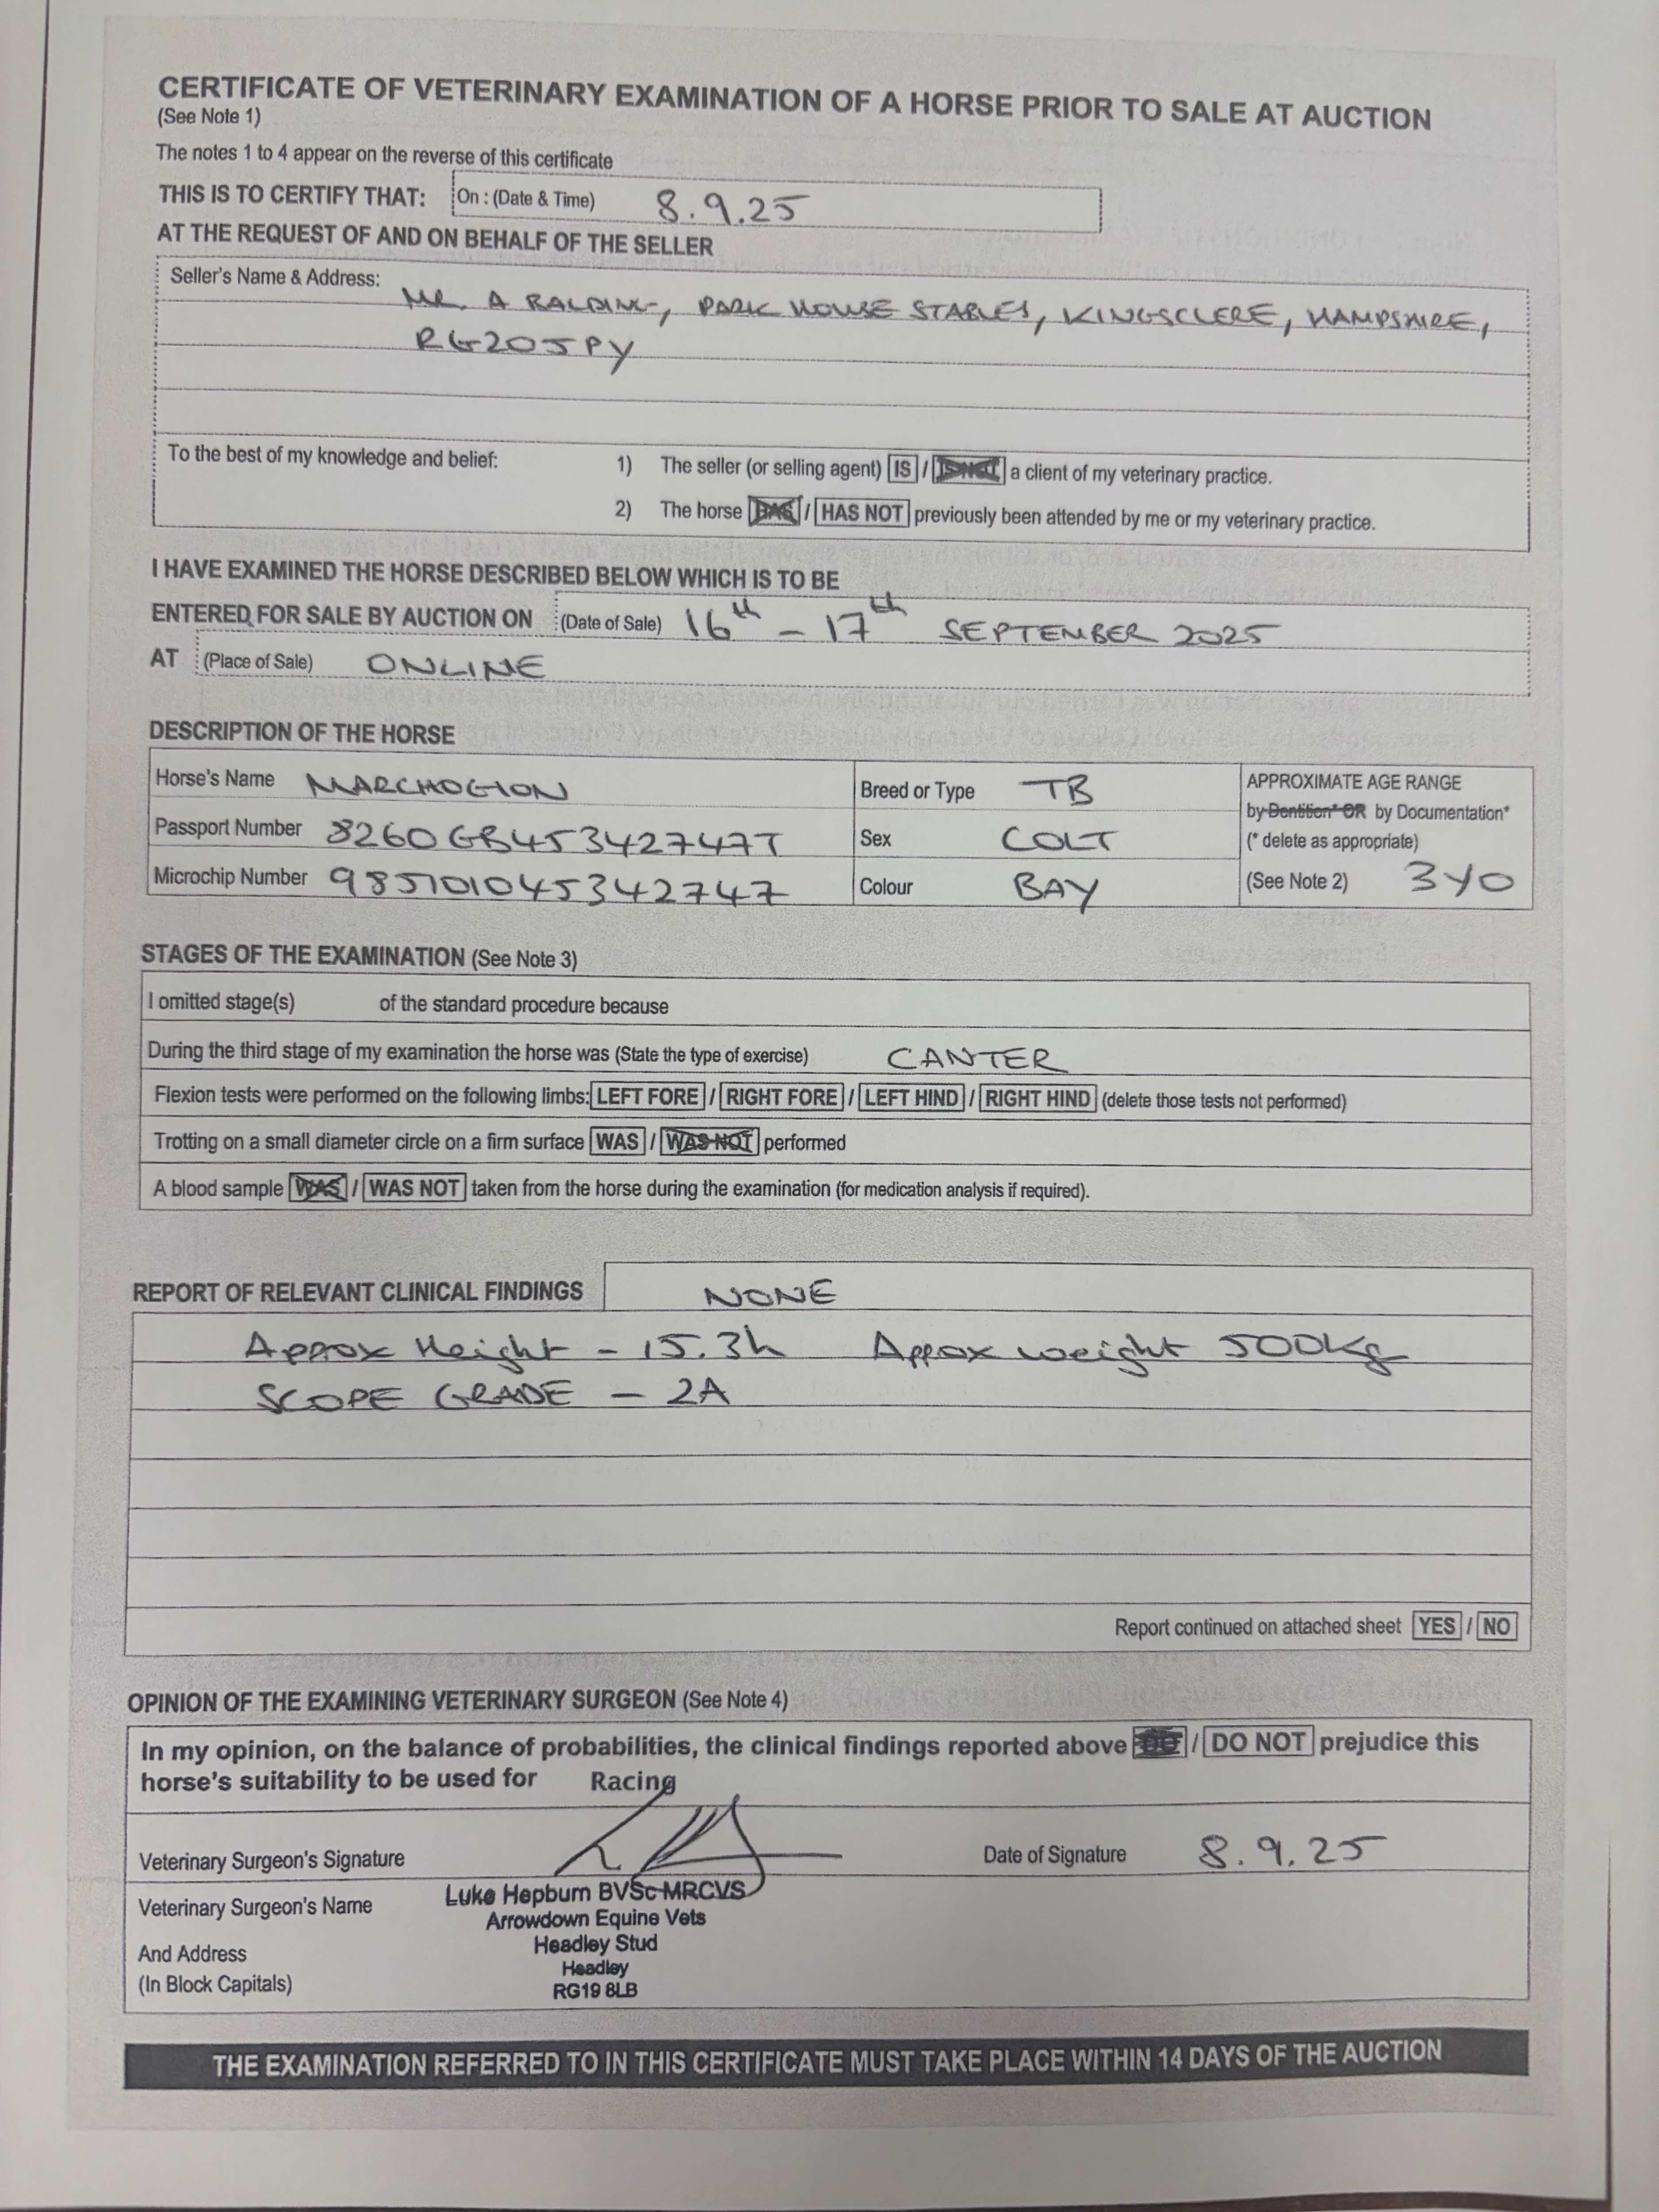 CERTIFICATE OF VETERINARY EXAMINATION OF A HORSE PRIOR TO SALE AT AUCTION
(See Note 1)
The notes 1 to 4 appear on the reverse of this certificate
THIS IS TO CERTIFY THAT: On : (Date & Time) 8.9.25
AT THE REQUEST OF AND ON BEHALF OF THE SELLER
Seller's Name & Address:
MR. A BALDING, PARK HOUSE STABLES, KINGSCLERE, HAMPSHIRE,
RG205PY
To the best of my knowledge and belief: 1) The seller (or selling agent) IS / IS NOT a client of my veterinary practice.
2) The horse HAS / HAS NOT previously been attended by me or my veterinary practice.
I HAVE EXAMINED THE HORSE DESCRIBED BELOW WHICH IS TO BE
ENTERED FOR SALE BY AUCTION ON (Date of Sale) 16th - 17th SEPTEMBER 2025
AT (Place of Sale) ONLINE
DESCRIPTION OF THE HORSE
Horse's Name MARCHOGION Breed or Type TB APPROXIMATE AGE RANGE
by Dentition* OR by Documentation*
Passport Number 8260GB45342747T Sex COLT (* delete as appropriate)
Microchip Number 985101045342747 Colour BAY (See Note 2) 3YO
STAGES OF THE EXAMINATION (See Note 3)
I omitted stage(s) of the standard procedure because
During the third stage of my examination the horse was (State the type of exercise) CANTER
Flexion tests were performed on the following limbs: LEFT FORE / RIGHT FORE / LEFT HIND / RIGHT HIND (delete those tests not performed)
Trotting on a small diameter circle on a firm surface WAS / WAS NOT performed
A blood sample WAS / WAS NOT taken from the horse during the examination (for medication analysis if required).
REPORT OF RELEVANT CLINICAL FINDINGS NONE
Approx Height - 15.3h Approx weight 500kg
SCOPE GRADE - 2A
Report continued on attached sheet YES / NO
OPINION OF THE EXAMINING VETERINARY SURGEON (See Note 4)
In my opinion, on the balance of probabilities, the clinical findings reported above DO / DO NOT prejudice this
horse's suitability to be used for Racing
Veterinary Surgeon's Signature Date of Signature 8.9.25
Veterinary Surgeon's Name Luke Hepburn BVSc MRCVS
Arrowdown Equine Vets
And Address Headley Stud
Headley
(In Block Capitals) RG19 8LB
THE EXAMINATION REFERRED TO IN THIS CERTIFICATE MUST TAKE PLACE WITHIN 14 DAYS OF THE AUCTION